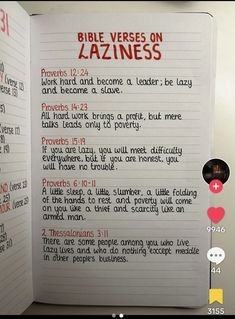 31
BIBLE VERSES ON
LAZINESS
Proverbs 12:24
Work hard and become a leader; be lazy
and become a slave.
Proverbs 14:23
All hard work brings a profit, but mere
talks leads only to poverty.
Proverbs 15:19
If you are lazy, you will meet difficulty
everywhere, but if you are honest, you
will have no trouble.
Proverbs 6:10-11
A little sleep, a little slumber, a little folding
of the hands to rest and poverty will come
on you like a thief and scarcity like an
armed man.
2 Thessalonians 3:11
There are some people among you who live
lazy lives and who do nothing except meddle
in other people's business.
9946
44
3155